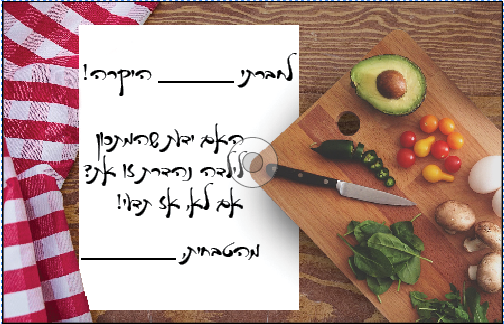 לחברתי _______ היקרה!
האם ידעת שהמתכון
לילדה נהדרת זו את?
אם לא, אז תדעי!
מהטבחית, _________